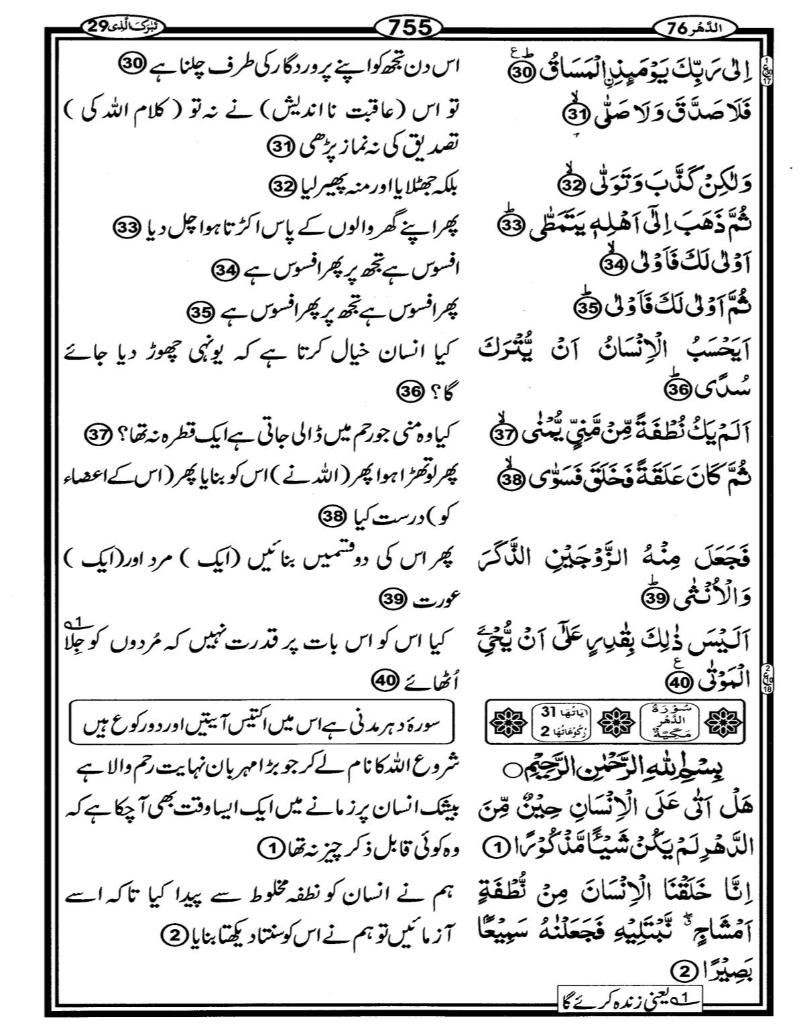 الدَّهْر 76
755
تَبٰرَكَ الَّذِی 29
اِلٰى رَبِّكَ يَوْمَىِٕذِ ِۨالْمَسَاقُ ؕ ع 30
فَلَا صَدَّقَ وَ لَا صَلّٰى ۙ 31
وَلٰكِنْ كَذَّبَ وَ تَوَلّٰى ۙ 32
ثُمَّ ذَهَبَ اِلٰۤى اَهْلِهٖ يَتَمَطّٰى ؕ 33
اَوْلٰى لَكَ فَاَوْلٰى ۙ 34
ثُمَّ اَوْلٰى لَكَ فَاَوْلٰى ؕ 35
اَيَحْسَبُ الْاِنْسَانُ اَنْ يُّتْرَكَ
سُدًى ؕ 36
اَلَمْ يَكُ نُطْفَةً مِّنْ مَّنِىٍّ يُّمْنٰى ۙ 37
ثُمَّ كَانَ عَلَقَةً فَخَلَقَ فَسَوّٰى ۙ 38
فَجَعَلَ مِنْهُ الزَّوْجَيْنِ الذَّكَرَ
وَ الْاُنْثٰى ؕ 39
اَلَيْسَ ذٰلِكَ بِقٰدِرٍ عَلٰۤى اَنْ يُّحْيِۦَ
الْمَوْتٰى ع 40
اس دن تجھ کو اپنے پروردگار کی طرف چلنا ہے 30
تو اس (عاقبت نا اندیش) نے نہ تو ( کلام اللہ کی )
تصدیق کی نہ نماز پڑھی 31
بلکہ جھٹلایا اور منہ پھیر لیا 32
پھر اپنے گھر والوں کے پاس اکڑتا ہوا چل دیا 33
افسوس ہے تجھ پر پھر افسوس ہے 34
پھر افسوس ہے تجھ پر پھر افسوس ہے 35
کیا انسان خیال کرتا ہے کہ یونہی چھوڑ دیا جائے
گا؟ 36
کیا وہ منی جو رحم میں ڈالی جاتی ہے ایک قطرہ نہ تھا؟ 37
پھر لوتھڑا ہوا پھر (اللہ نے) اس کو بنایا پھر (اس کے اعضاء
کو) درست کیا 38
پھر اس کی دو قسمیں بنائیں (ایک ) مرد اور (ایک )
عورت 39
کیا اس کو اس بات پر قدرت نہیں کہ مُردوں کو جِلا 1
اُٹھائے 40
سُوْرَةُ الدَّهْرِ مَكِّيَّةٌ
اٰيَاتُهَا 31
رُكُوْعَاتُهَا 2
سورۂ دہر مدنی ہے اس میں اکتیس آیتیں اور دو رکوع ہیں
بِسْمِ اللّٰهِ الرَّحْمٰنِ الرَّحِيْمِ
هَلْ اَتٰى عَلَى الْاِنْسَانِ حِيْنٌ مِّنَ
الدَّهْرِ لَمْ يَكُنْ شَيْـًٔا مَّذْكُوْرًا 1
اِنَّا خَلَقْنَا الْاِنْسَانَ مِنْ نُّطْفَةٍ
اَمْشَاجٍ ۖۗ نَّبْتَلِيْهِ فَجَعَلْنٰهُ سَمِيْعًۢا
بَصِيْرًا 2
شروع اللہ کا نام لے کر جو بڑا مہربان نہایت رحم والا ہے
بیشک انسان پر زمانے میں ایک ایسا وقت بھی آ چکا ہے کہ
وہ کوئی قابل ذکر چیز نہ تھا 1
ہم نے انسان کو نطفہ مخلوط سے پیدا کیا تاکہ اسے
آزمائیں تو ہم نے اس کو سنتا دیکھتا بنایا 2
1 یعنی زندہ کر ئے گا